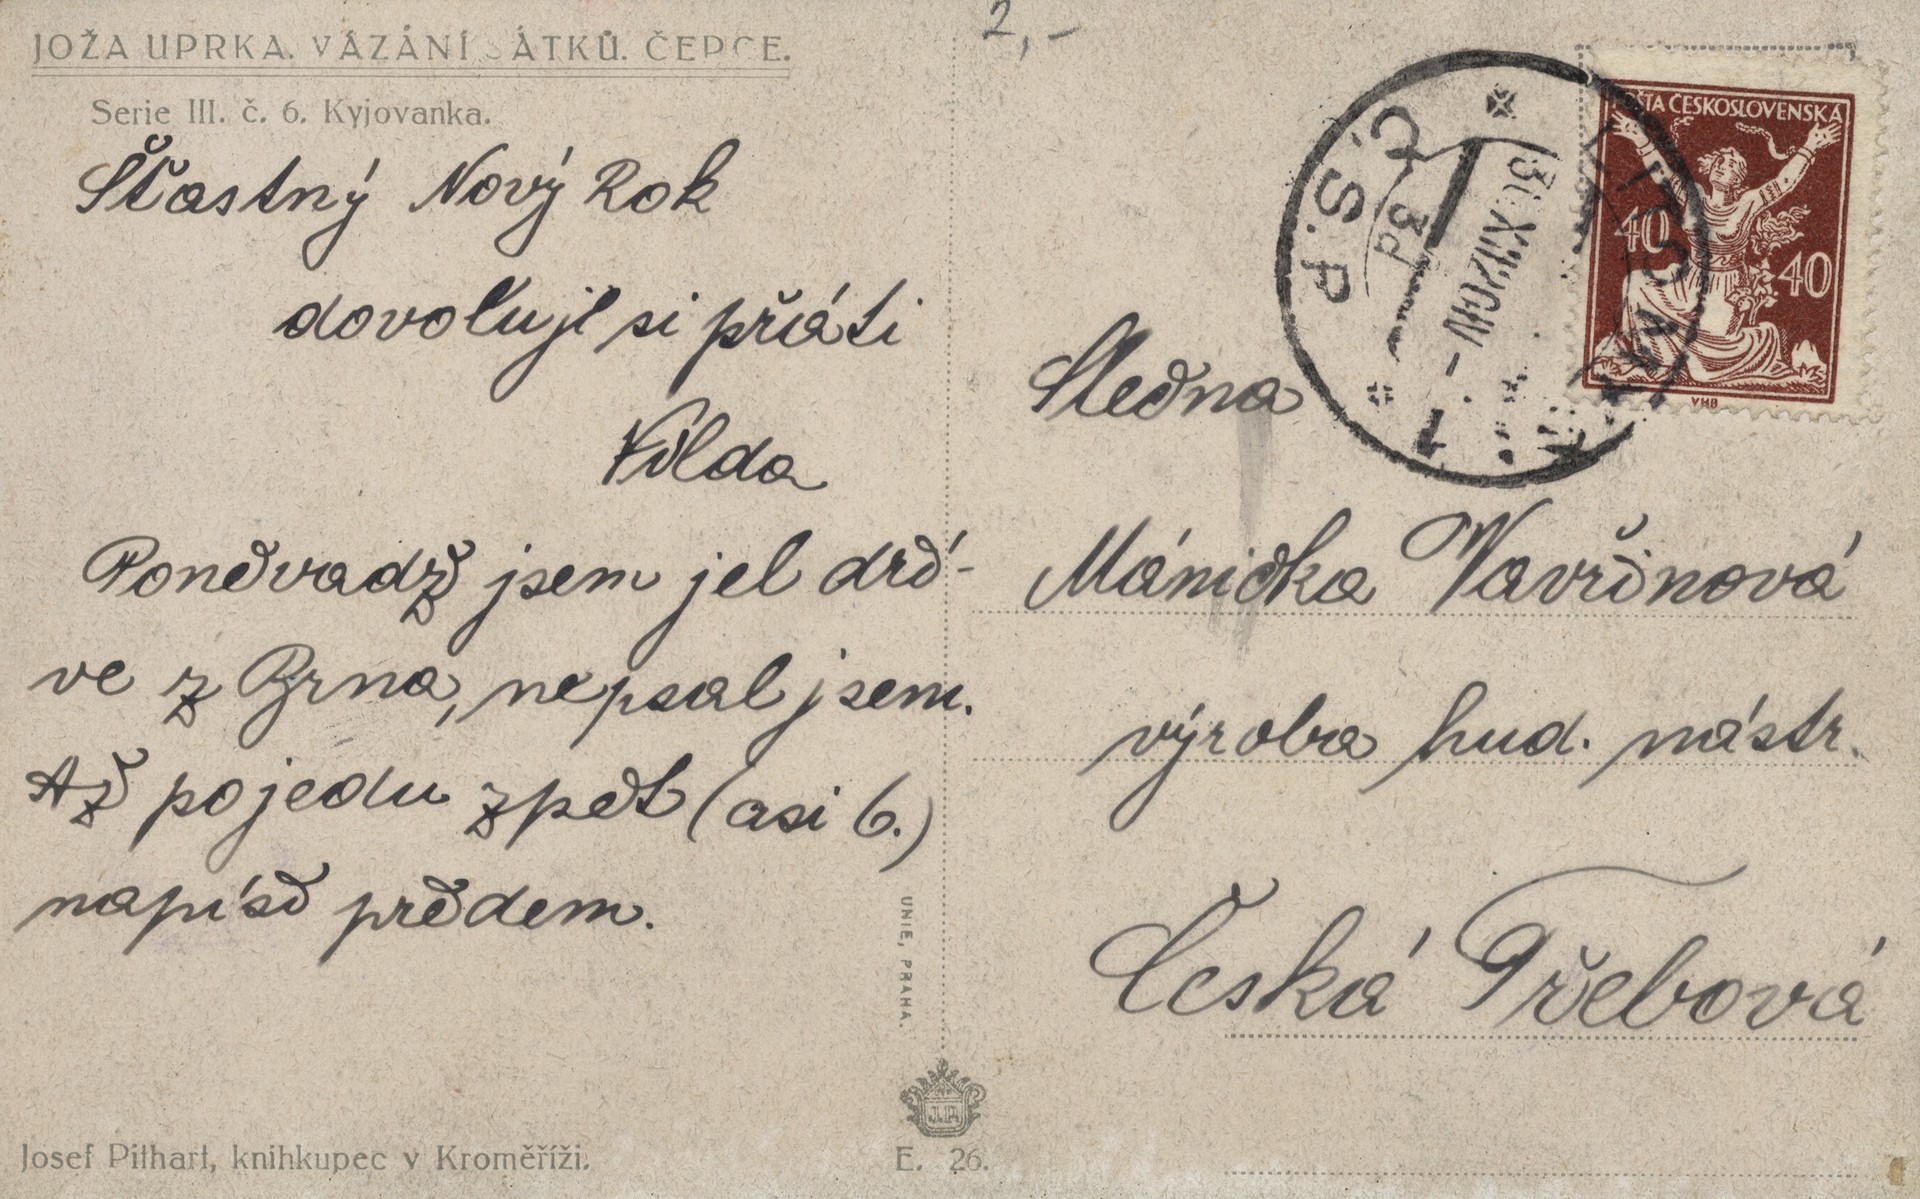 2,-
JOŽA UPRKA. VÁZÁNÍ ŠÁTKŮ. ČEPCE.
Serie III. č. 6. Kyjovanka.
Šťastný Nový Rok
dovoluji si přáti
Vilda
Poněvadž jsem jel dří-
ve z Brna, nepsal jsem.
Až pojedu zpět (asi 6.)
napíši předem.
Josef Pithart, knihkupec v Kroměříži.
UNIE, PRAHA.
J.P.
E. 26.
POŠTA ČESKOSLOVENSKÁ
40
40
VHB
Č.S.P
3d
30 XII 20 IV
1
Slečna
Mánička Vavřinová
výroba hud. nástr.
Česká Třebová